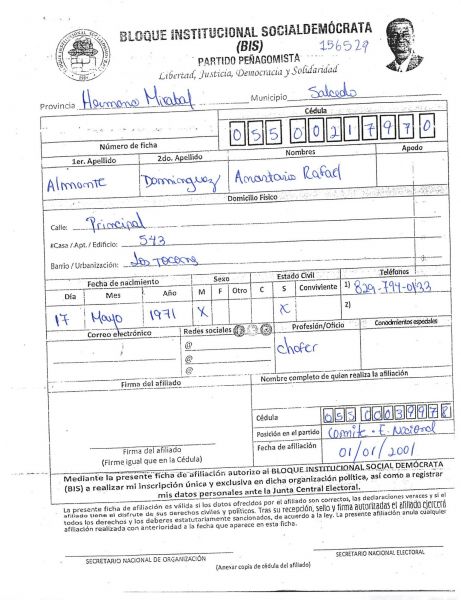 BLOQUE INSTITUCIONAL SOCIALDEMÓCRATA
(BIS) 156529
PARTIDO PEÑAGOMISTA
Libertad, Justicia, Democracia y Solidaridad
Provincia Hermana Mirabal Municipio Salcedo
Cédula
Número de ficha 055 0021797 0
1er. Apellido 2do. Apellido Nombres Apodo
Almonte Dominguez Anastacio Rafael
Domicilio Físico
Calle: Principal
#Casa / Apt. / Edificio: 543
Barrio / Urbanización: Los
Fecha de nacimiento Sexo Estado Civil Teléfonos
Día Mes Año M F Otro C S Conviviente 1) 829-794-0133
17 Mayo 1971 X X 2)
Correo electrónico Redes sociales Profesión/Oficio Conocimientos especiales
@ chofer
@
@
Firma del afiliado Nombre completo de quien realiza la afiliación
Cédula 053 0003997 8
Posición en el partido Comite E. Nacional
Firma del afiliado Fecha de afiliación 01/01/2001
(Firme igual que en la Cédula)
Mediante la presente ficha de afiliación autorizo al BLOQUE INSTITUCIONAL SOCIAL DEMÓCRATA
(BIS) a realizar mi inscripción única y exclusiva en dicha organización política, así como a registrar
mis datos personales ante la Junta Central Electoral.
La presente ficha de afiliación es válida si los datos ofrecidos por el afiliado son correctos, las declaraciones veraces y si el
afiliado tiene el disfrute de sus derechos civiles y políticos. Tras su recepción, sello y firma autorizadas el afiliado ejercerá
todos los derechos y los deberes estatutariamente sancionados, de acuerdo a la ley. La presente afiliación anula cualquier
afiliación realizada con anterioridad a la fecha que aparece en esta ficha.
SECRETARIO NACIONAL DE ORGANIZACIÓN SECRETARIO NACIONAL ELECTORAL
(Anexar copia de cédula del afiliado)